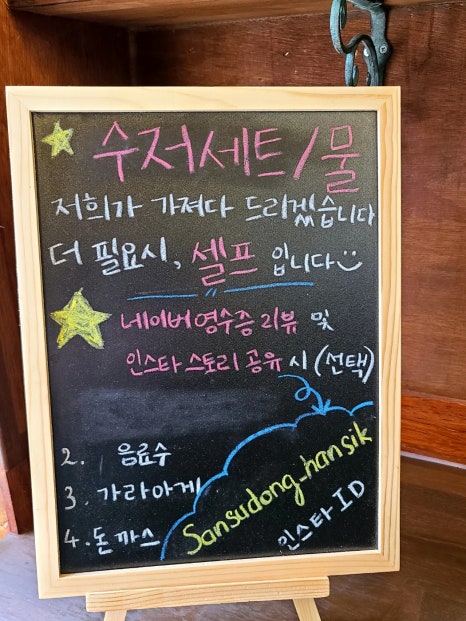 수저세트/물
저희가 가져다 드리겠습니다
더 필요시, 셀프 입니다
네이버영수증리뷰 및
인스타스토리공유 시 (선택)
2. 음료수
3. 가라아게
4. 돈까스
Sansudong_hansik
인스타 ID